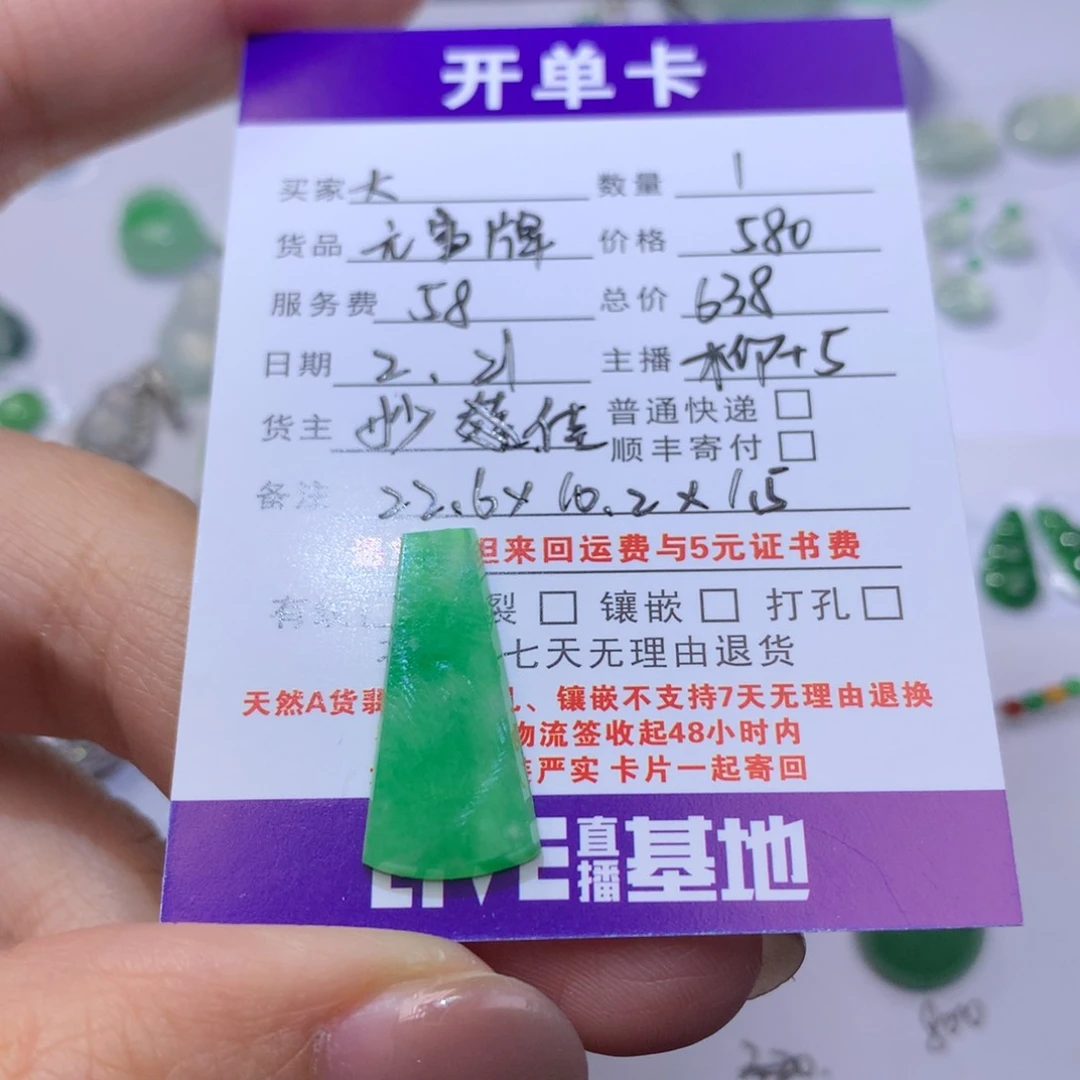 开单卡
买家 大 数量 1
货品 元宝牌 价格 580
服务费 58 总价 638
日期 2.21 主播 柳+5
货主 妙 佳 普通快递
顺丰寄付
备注 22.6x10.2x1.5
担来回运费与5元证书费
有 裂 镶嵌 打孔
七天无理由退货
天然A货翡 、镶嵌不支持7天无理由退换
物流签收起48小时内
严实 卡片一起寄回
LIVE 直播 基地
800